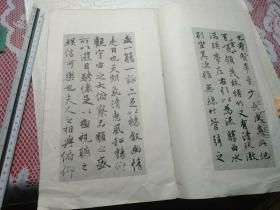 也群賢畢至少長咸集此地
有崇山峻領茂林脩竹又有清流激
湍暎帶左右引以為流觴曲水
列坐其次雖無絲竹管弦之
盛一觴一詠亦足以暢敘幽情
是日也天朗氣清惠風和暢仰
觀宇宙之大俯察品類之盛
所以遊目騁懷足以極視聽之
娛信可樂也夫人之相與俯仰